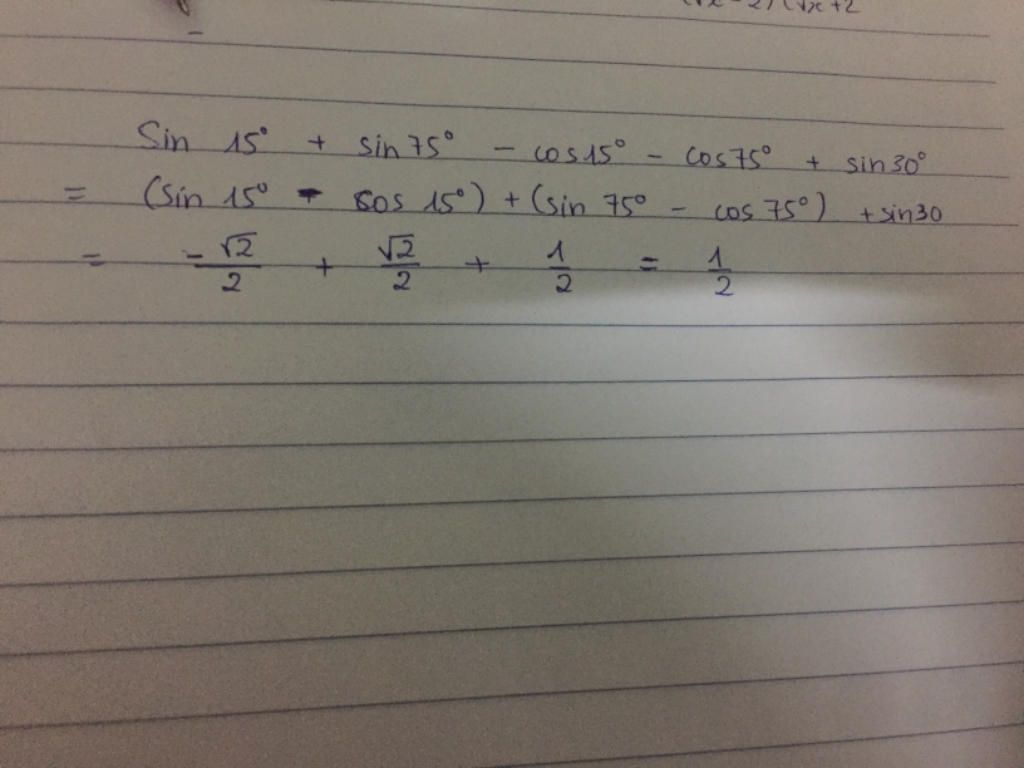 (√x - 2)(√x + 2
Sin 15° + sin 75° - cos15° - cos75° + sin30°
= (Sin 15° - cos 15°) + (sin 75° - cos 75°) + sin30
= -√2/2 + √2/2 + 1/2 = 1/2